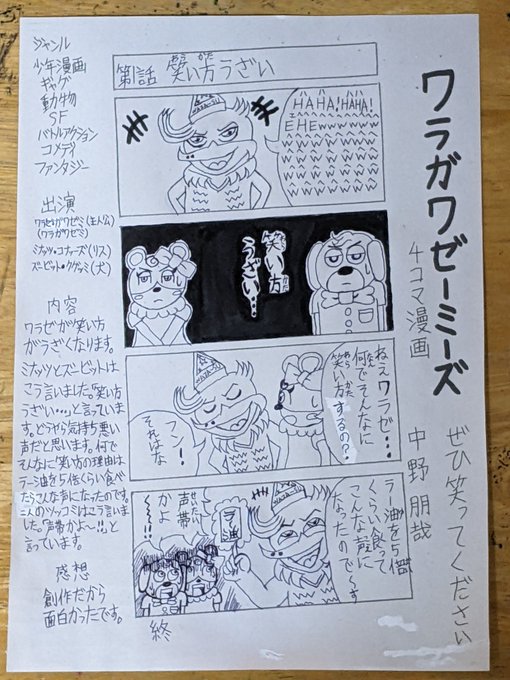 ワラガワゼーミーズ
4コマ漫画
中野朋哉
ぜひ笑ってください
第1話 笑い方うざい
HAHA!HAHA!
EHEwwww
笑い方
うざい…
ねえワラゼ…
何でそんなに
笑い方するの?
フン!
それはな
ラー油を5倍
くらい食って
こんな声に
なったので〜す
ラー油
声帯
かよ
〜〜!!
終
ジャンル
少年漫画
ギャグ
動物
SF
バトルアクション
コメディ
ファンタジー
出演
(主人公)
(ワラガワゼミ)
ミナッツ・コナーズ(リス)
ズービット・クゲッミ(犬)
内容
ワラゼが笑い方
がうざくなります。
ミナッツとズービットは
こう言いました。「笑い方
うざい…」と言っていま
す。どうやら気持ち悪い
声だと思います。何で
そんなに笑い方の理由は
ラー油を5倍くらい食べ
たらこんな声になったのです。
二人のツッコミはこう言いま
した。「声帯かよ〜!!」と
言っています。
感想
創作だから
面白かったです。